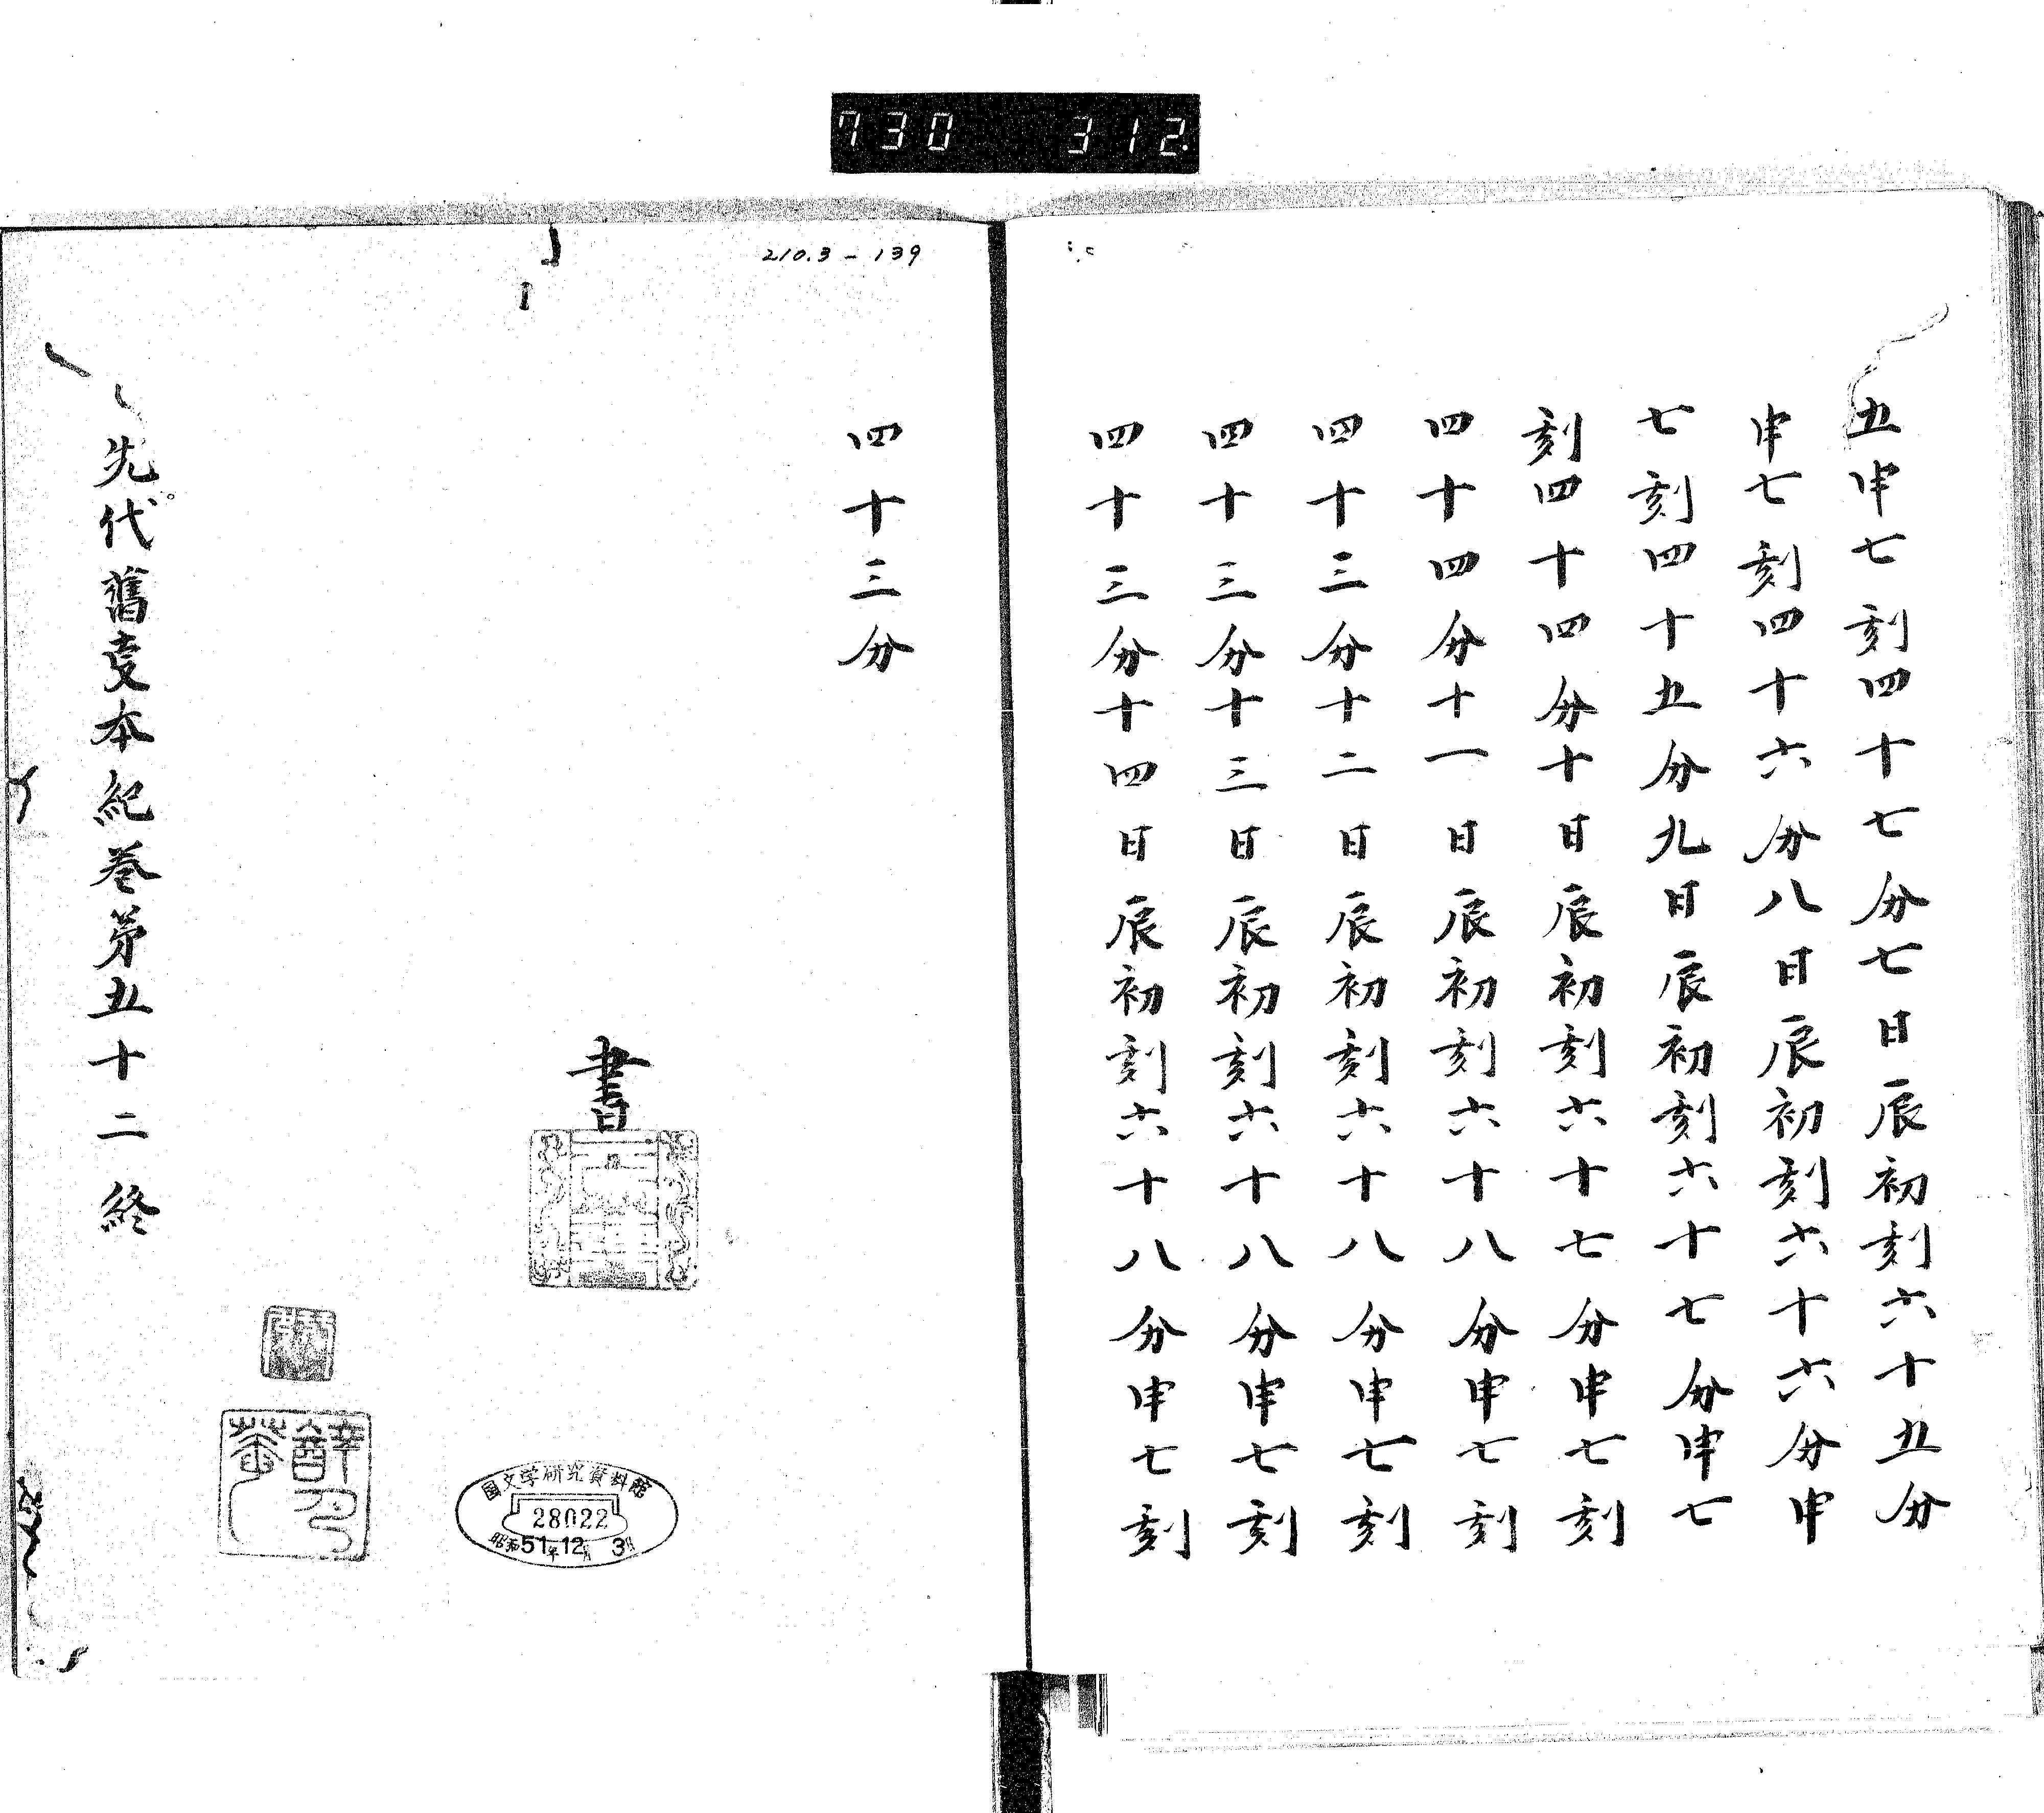 730 312
五申七刻四十七分七日辰初刻六十五分
申七刻四十六分八日辰初刻六十六分申
七刻四十五分九日辰初刻六十七分申七
刻四十四分十日辰初刻六十七分申七刻
四十四分十一日辰初刻六十八分申七刻
四十三分十二日辰初刻六十八分申七刻
四十三分十三日辰初刻六十八分申七刻
四十三分十四日辰初刻六十八分申七刻
210.3-139
四十三分
書
国文学研究資料館
28022
昭和51年12月3日
先代舊事本紀巻第五十二終